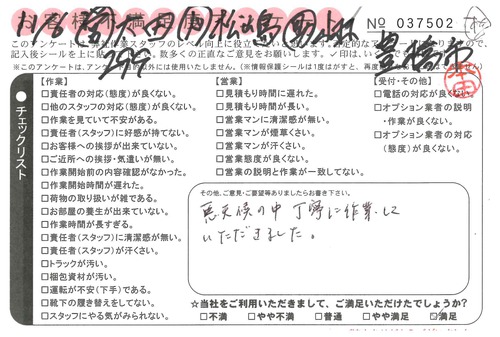 11/6
No 037502
豊橋市
チェックリスト
【作業】
□責任者の対応(態度)が良くない。
□他のスタッフの対応(態度)が良くない。
□作業を見ていて不安がある。
□責任者(スタッフ)に好感が持てない。
□お客様への挨拶が出来ていない。
□ご近所への挨拶・気遣いが無い。
□作業開始前の内容確認がなかった。
□作業開始時間が遅れた。
□荷物の取り扱いが雑である。
□お部屋の養生が出来ていない。
□作業時間が長すぎる。
□責任者(スタッフ)に清潔感が無い。
□責任者(スタッフ)が汗くさい。
□トラックが汚い。
□梱包資材が汚い。
□運転が不安(下手)である。
□靴下の履き替えをしてない。
□スタッフにやる気がみられない。
【営業】
□見積もり時間に遅れた。
□見積もり時間が長い。
□営業マンに清潔感が無い。
□営業マンが煙草くさい。
□営業マンが汗くさい。
□営業態度が良くない。
□営業の説明と作業が一致してない。
【受付・その他】
□電話の対応が良くない。
□オプション業者の説明
・作業が良くない。
□オプション業者の対応
(態度)が良くない。
その他、ご意見・ご要望等ありましたらお書き下さい。
悪天候の中 丁寧に作業して
いただきました。
☆当社をご利用いただきまして、ご満足いただけたでしょうか?
□不満 □やや不満 □普通 □やや満足 ☑満足